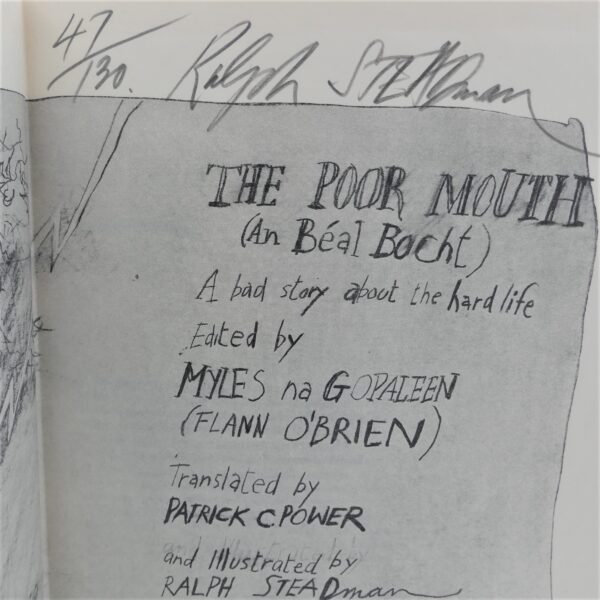 47/130. Ralph STEADman
THE POOR MOUTH
(An Béal Bocht)
A bad story about the hard life
Edited by
MYLES na GOPALEEN
(FLANN O'BRIEN)
Translated by
PATRICK C. POWER
and Illustrated by
RALPH STEADman